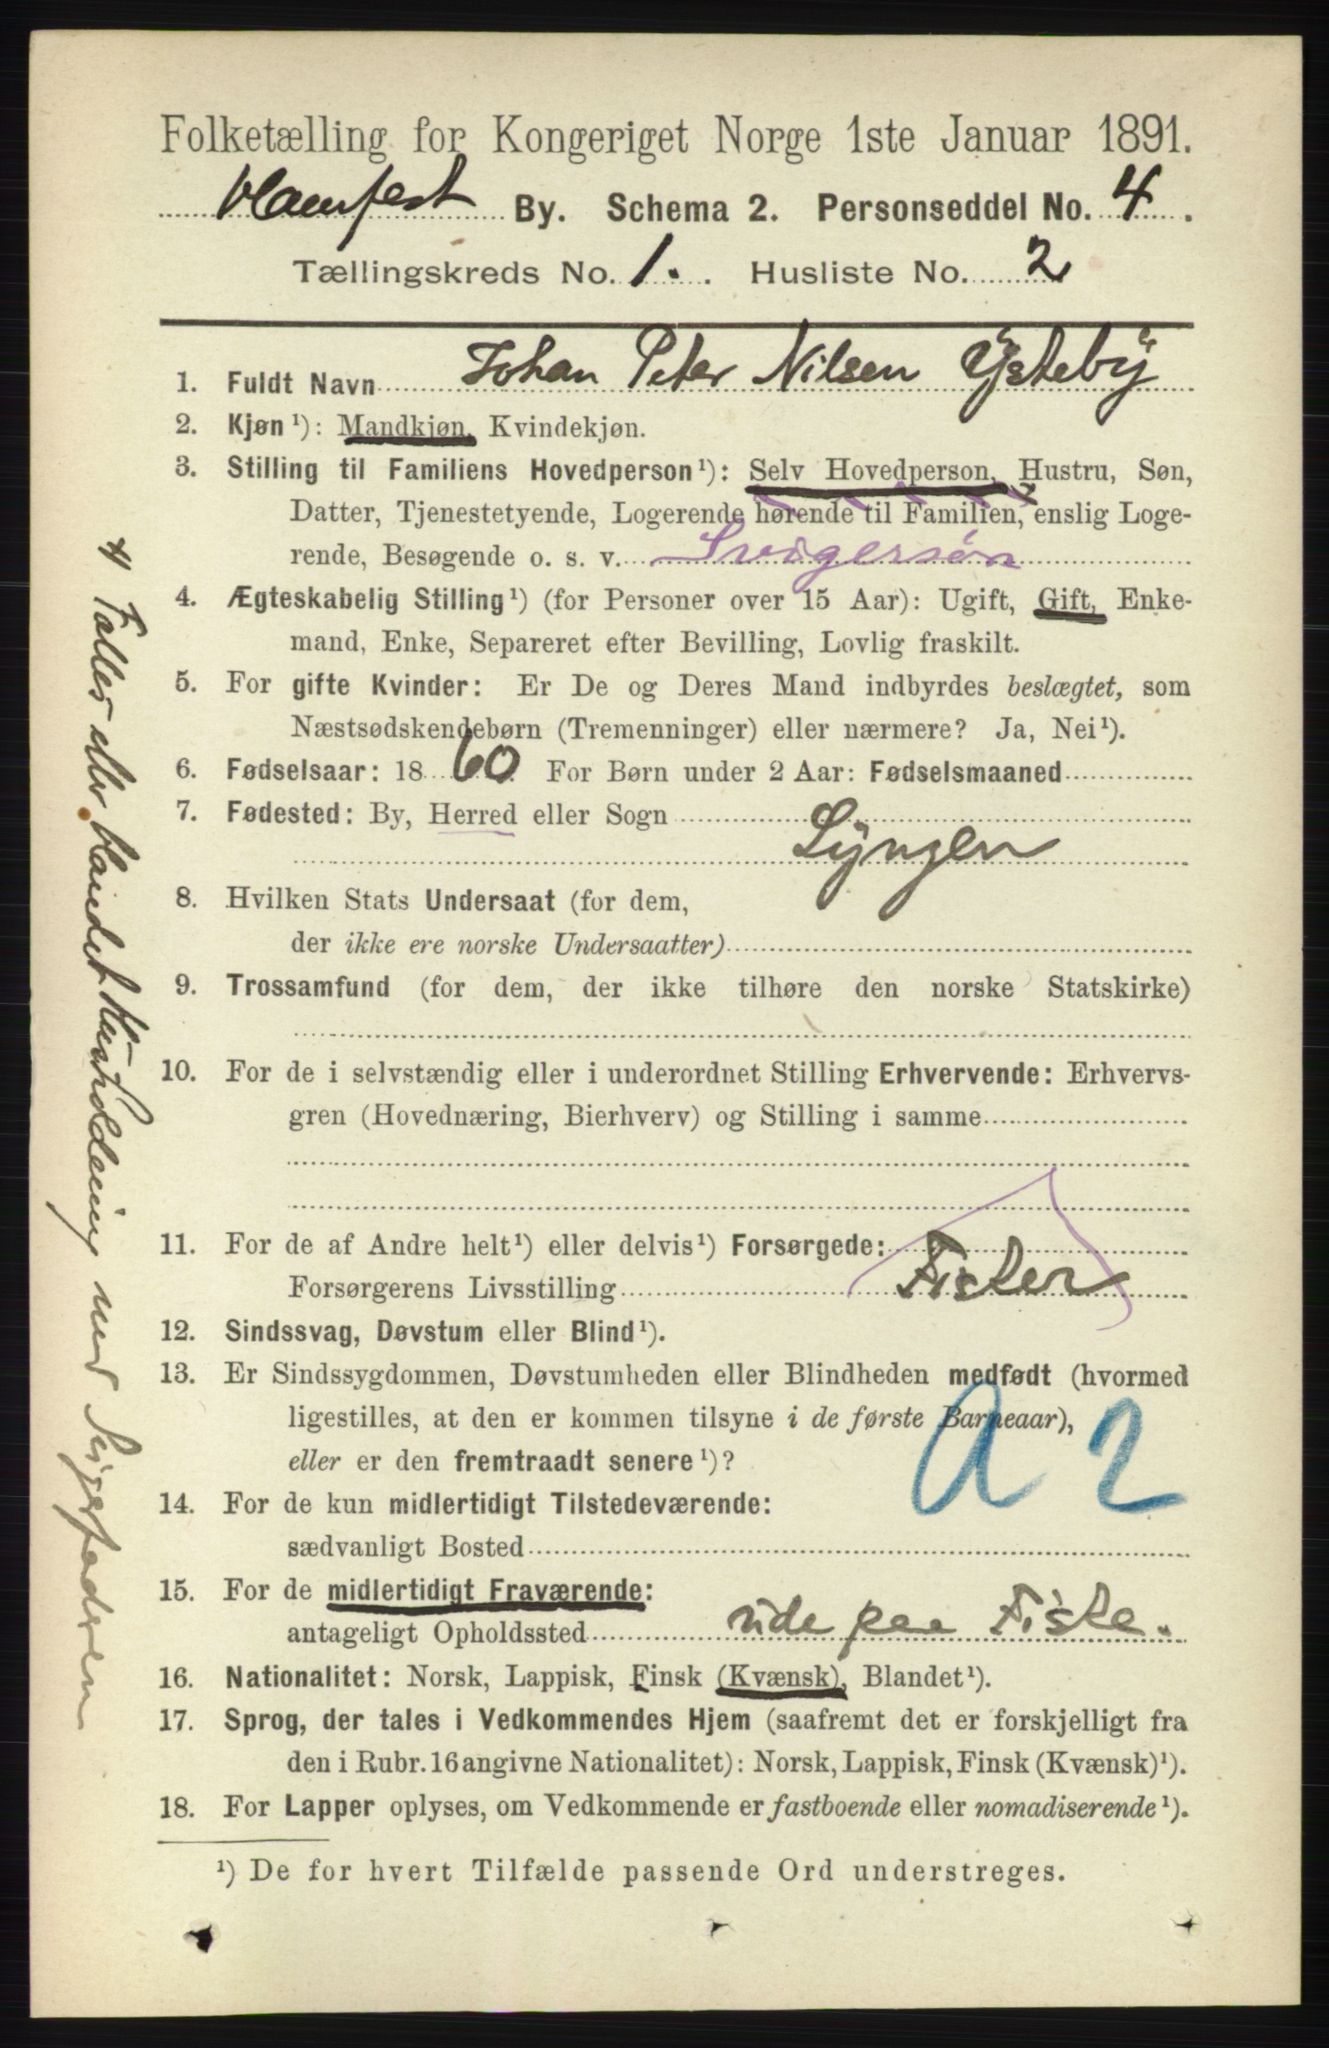 Folketælling for Kongeriget Norge 1ste Januar 1891.
Hamfest By. Schema 2. Personseddel No. 4.
Tællingskreds No. 1. Husliste No. 2
1. Fuldt Navn Johan Peter Nilsen Ÿsteby
2. Kjøn¹): Mandkjøn, Kvindekjøn.
3. Stilling til Familiens Hovedperson¹): Selv Hovedperson, Hustru, Søn,
Datter, Tjenestetyende, Logerende hørende til Familien, enslig Loge-
rende, Besøgende o. s. v. Svigersøn
4. Ægteskabelig Stilling¹) (for Personer over 15 Aar): Ugift, Gift, Enke-
mand, Enke, Separeret efter Bevilling, Lovlig fraskilt.
5. For gifte Kvinder: Er De og Deres Mand indbyrdes beslægtet, som
Næstsødskendebørn (Tremenninger) eller nærmere? Ja, Nei¹).
6. Fødselsaar: 1860 For Børn under 2 Aar: Fødselsmaaned
7. Fødested: By, Herred eller Sogn
Lyngen
8. Hvilken Stats Undersaat (for dem,
der ikke ere norske Undersaatter)
9. Trossamfund (for dem, der ikke tilhøre den norske Statskirke)
10. For de i selvstændig eller i underordnet Stilling Erhvervende: Erhvervs-
gren (Hovednæring, Bierhverv) og Stilling i samme
11. For de af Andre helt¹) eller delvis¹) Forsørgede:
Forsørgerens Livsstilling Fisker
12. Sindssvag, Døvstum eller Blind¹).
13. Er Sindssygdommen, Døvstumheden eller Blindheden medfødt (hvormed
ligestilles, at den er kommen tilsyne i de første Barneaar),
eller er den fremtraadt senere¹)?
a 2
14. For de kun midlertidigt Tilstedeværende:
sædvanligt Bosted
15. For de midlertidigt Fraværende:
antageligt Opholdssted ude paa Fiske.
16. Nationalitet: Norsk, Lappisk, Finsk (Kvænsk), Blandet¹).
17. Sprog, der tales i Vedkommendes Hjem (saafremt det er forskjelligt fra
den i Rubr. 16 angivne Nationalitet): Norsk, Lappisk, Finsk (Kvænsk)¹).
18. For Lapper oplyses, om Vedkommende er fastboende eller nomadiserende¹).
¹) De for hvert Tilfælde passende Ord understreges.
Fælles eller blandet Husholdning med